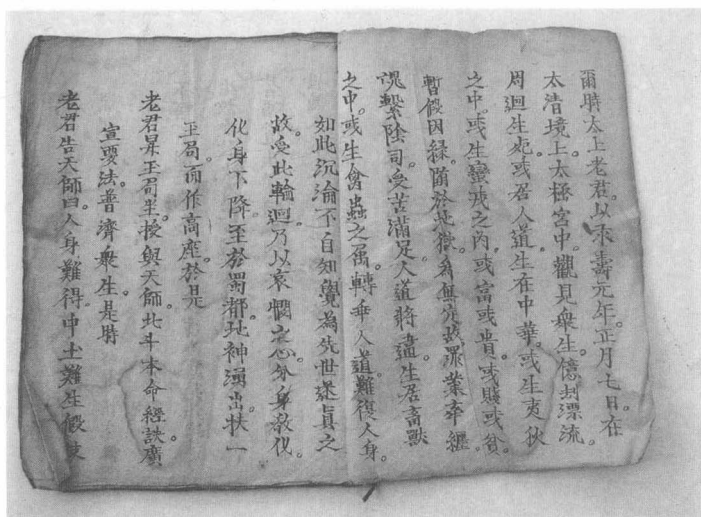 爾時太上老君。以永壽元年。正月七日在
太清境上。太極宮中。觀見衆生。億刧漂流。
周迴生死。或居人道。生在中華。或生夷狄
之中。或生蠻戎之內。或富或貴。或賤或貧。
暫假因緣。墮於地獄。為無定故。罪業牽纏。
魂繫陰司。受苦滿足。人道將違。生居畜獸
之中。或生禽蟲之屬。轉乖人道。難復人身。
如此沉淪。不自知覺。為先世迷真之
故。受此輪迴。乃以哀憫之心。分身教化。
化身下降。至於蜀都。地神湧出。扶一
玉局。而作高座。於是
老君昇玉局坐。授與天師。北斗本命經訣。廣
宣要法。普濟衆生。是時
老君告天師曰。人身難得。中土難生。假使